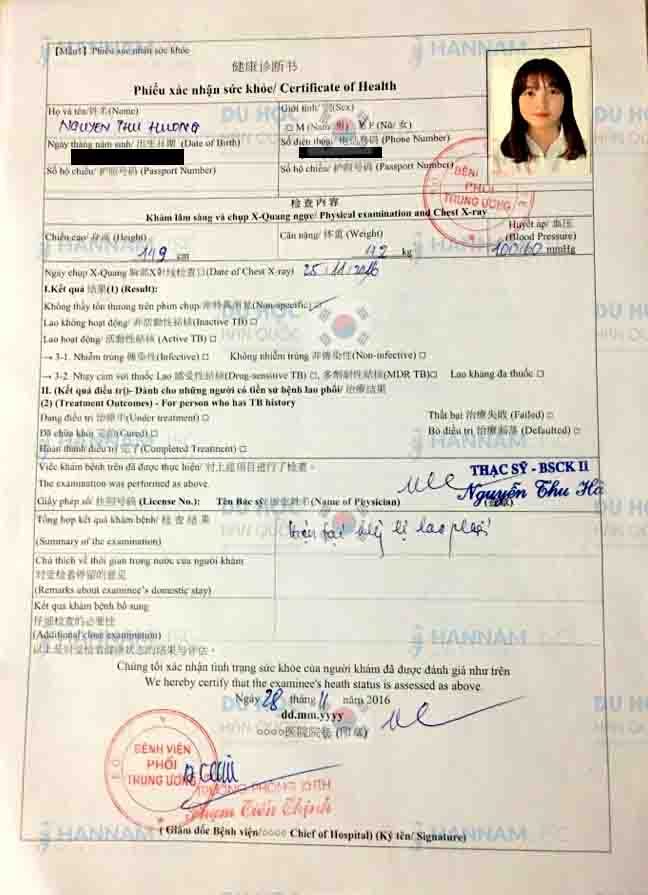 【Mẫu1】Phiếu xác nhận sức khỏe
健康诊断书
Phiếu xác nhận sức khỏe/ Certificate of Health
Họ và tên/姓名(Name)
NGUYEN THU HUONG
Giới tính/ (Sex)
□ M (Nam/ 男) V F (Nữ/ 女)
Ngày tháng năm sinh/ 出生日期 (Date of Birth)
Số điện thoại/ 电话号码 (Phone Number)
Số hộ chiếu/ 护照号码 (Passport Number)
Số hộ chiếu/ 护照号码 (Passport Number)
BỆNH VIỆN
PHỔI
TRUNG ƯƠNG
检查内容
Khám lâm sàng và chụp X-Quang ngực/ Physical examination and Chest X-ray
Chiều cao/ 身高 (Height)
149 cm
Cân nặng/ 体重 (Weight)
42 kg
Huyết áp/ 血压
(Blood Pressure)
100/60 mmHg
Ngày chụp X-Quang 胸部X射线检查日(Date of Chest X-ray) 25/11/2016
I.Kết quả 结果(1) (Result):
Không thấy tổn thương trên phim chụp/ (Non-specific)
Lao không hoạt động/ 非活動性結核(Inactive TB) □
Lao hoạt động/ 活動性結核 (Active TB) □
→ 3-1. Nhiễm trùng 傳染性(Infective) □ Không nhiễm trùng 非傳染性(Non-infective) □
→ 3-2. Nhạy cảm với thuốc Lao 感受性結核(Drug-sensitive TB) □, 多劑耐性結核(MDR TB)□ Lao kháng đa thuốc □
II. (Kết quả điều trị)- Dành cho những người có tiền sử bệnh lao phổi/ 治療結果
(2) (Treatment Outcomes) - For person who has TB history
Đang điều trị 治療中(Under treatment) □
Thất bại 治療失敗 (Failed) □
Đã chữa khỏi 完治(Cured) □
Bỏ điều trị (Defaulted) □
Hoàn thành điều trị 完了(Completed Treatment) □
Việc khám bệnh trên đã được thực hiện/ 对上述项目进行了检查。
The examination was performed as above.
THẠC SỸ - BSCK II
Nguyễn Thu Hà
Giấy phép số/ 执照号码 (License No.): Tên Bác sỹ/ (Name of Physician)
Tổng hợp kết quả khám bệnh/ 检查结果
(Summary of the examination)
Hiện tại không bị lao phổi
Chú thích về thời gian trong nước của người khám
对受检者停留的意见
(Remarks about examinee's domestic stay)
Kết quả khám bệnh bổ sung
仔细检查的必要性
(Additional close examination)
以上是对受检者健康状态的结果与评估。
Chúng tôi xác nhận tình trạng sức khỏe của người khám đã được đánh giá như trên
We hereby certify that the examinee's heath status is assessed as above.
Ngày 28 tháng 11 năm 2016
dd.mm.yyyy
○○○○医院院长 (印章)
BỆNH VIỆN
PHỔI
TRUNG ƯƠNG
TRƯỞNG PHÒNG KHTH
Phạm Tiến Thịnh
( Giám đốc Bệnh viện/○○○○ Chief of Hospital) (Ký tên/ Signature)
HANNAM
DU HỌC
HÀN QUỐC